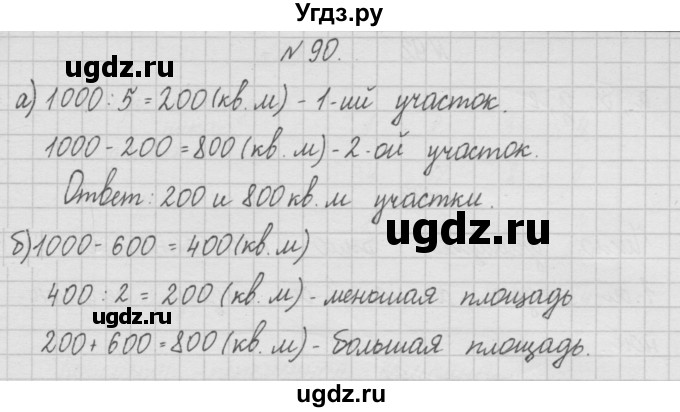 Угдз.ру
ugdz.ru
№90.
а) 1000 : 5 = 200 (кв. м) - 1-ий участок.
ugdz.ru
1000 - 200 = 800 (кв. м) - 2-ой участок.
Ответ: 200 и 800 кв. м участки.
ugdz.ru
б) 1000 - 600 = 400 (кв. м)
400 : 2 = 200 (кв. м) - меньшая площадь
ugdz.ru
200 + 600 = 800 (кв. м) - большая площадь.
ugdz.ru